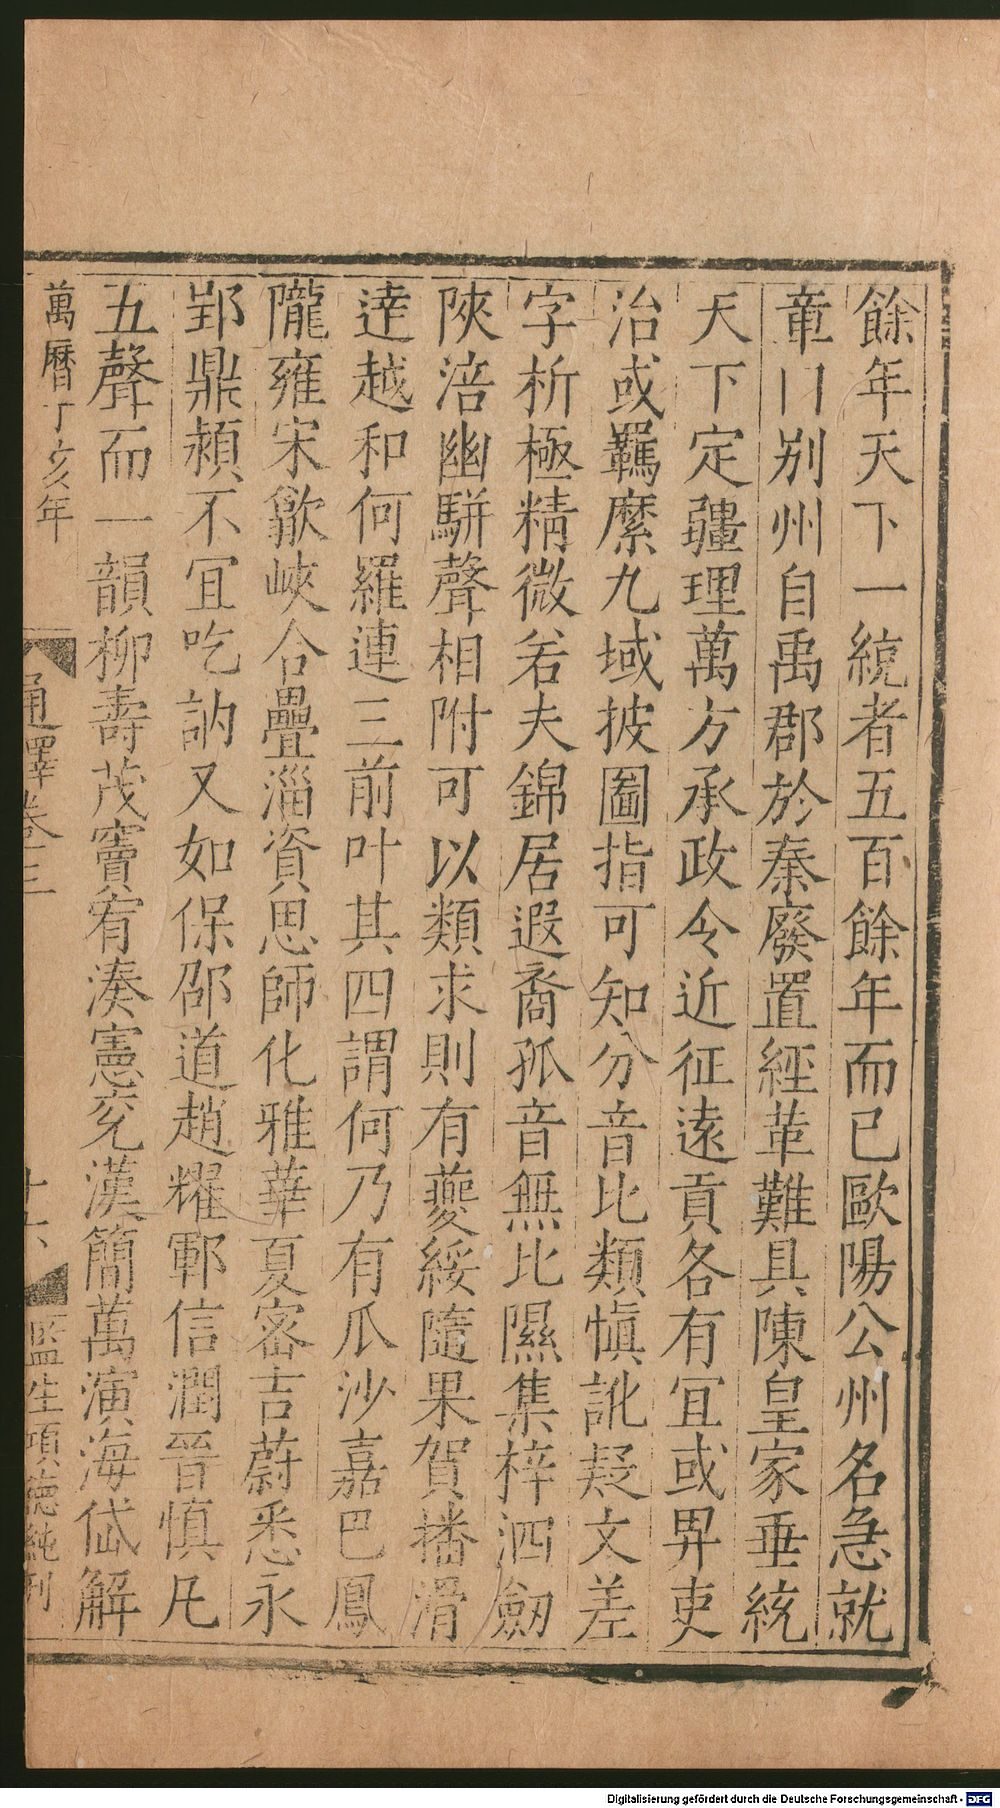 餘年天下一統者五百餘年而已歐陽公州名急就
章口別州自禹郡於秦廢置經革難具陳皇家垂統
天下定疆理萬方承政令近征遠貢各有宜或畀吏
治或羈縻九域披圖指可知分音比類愼訛疑文差
字析極精微若夫錦居遐裔孤音無比隰集梓泗劒
陜涪幽駢聲相附可以類求則有夔綏隨果賀播滑
達越和何羅連三前叶其四謂何乃有瓜沙嘉巴鳳
隴雍宋歙峽合疊淄資思師化雅華夏密吉蔚悉永
郢鼎潁不宜吃訥又如保邵道趙耀鄆信潤晉慎凡
五聲而一韻柳壽茂竇宥湊憲兖漢簡萬演海岱解
萬曆丁亥年
通譯卷三
十六
監生項德純刊
Digitalisierung gefördert durch die Deutsche Forschungsgemeinschaft - DFG